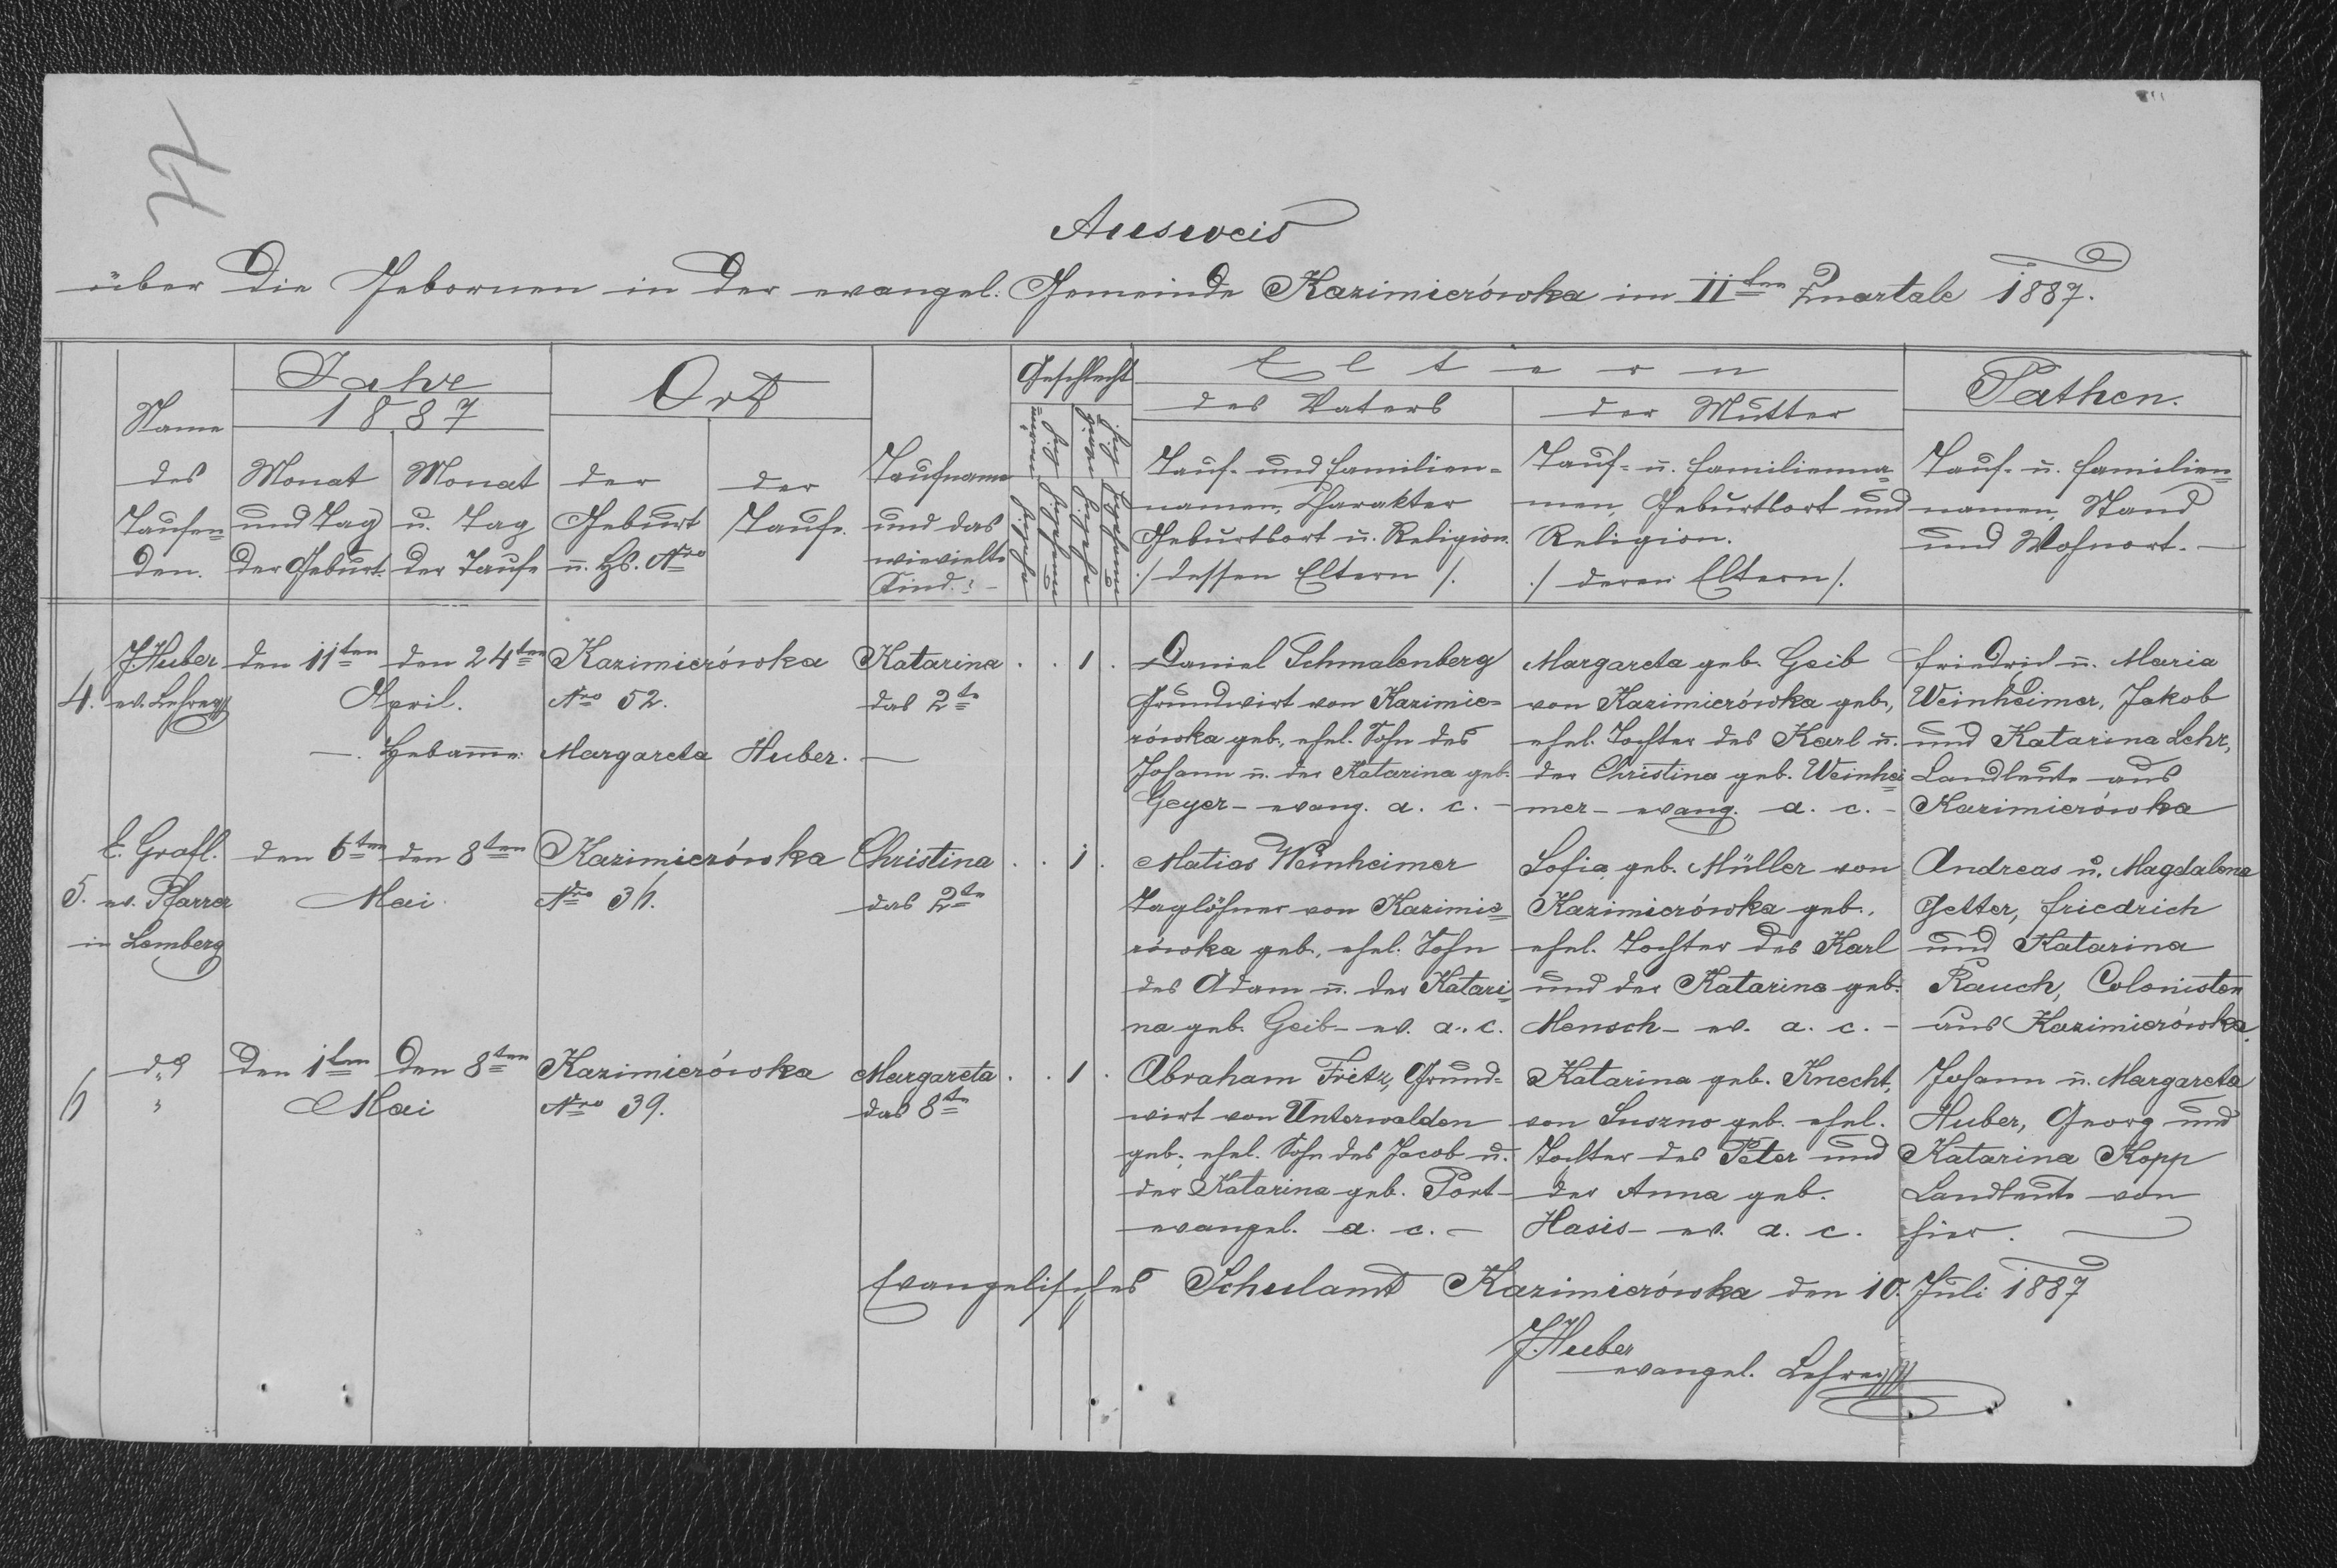 44
Ausweis
über die Gebornen in der evangel. Gemeinde Kazimierówka im IIten Quartale 1887.
Name des Taufen= den.
Jahr 1887
Monat und Tag der Geburt.
Monat u. Tag der Taufe
Ort
der Geburt u. Hs. Nro
der Taufe.
Taufname und das wievielte Kind. -
Geschlecht
Eltern
des Vaters
Tauf- und Familien=
namen, Charakter
Geburtsort u. Religion.
./ dessen Eltern /.
der Mutter
Tauf- u. Familienna=
men, Geburtsort und
Religion.
./ deren Eltern /.
Pathen.
Tauf- u. Familien=
namen, Stand
und Wohnort. -
4.
J. Huber
ev. Lehrer
den 11ten
den 24ten
April.
Kazimierówka
Nro 52.
- . Hebamme: Margareta Huber. -
Katarina
das 2te
. . 1 .
Daniel Schmalenberg
Grundwirt von Kazimie=
rówka geb., ehel. Sohn des
Johann u. der Katarina geb.
Geyer - evang. a. c. -
Margareta geb. Geib
von Kazimierówka geb.,
ehel. Tochter des Karl u.
der Christina geb. Weinhei=
mer - evang. a. c. -
Friedrich u. Maria
Weinheimer, Jakob
und Katarina Lehr,
Landleute aus
Kazimierówka
5.
E. Grafl.
ev. Pfarrer
in Lemberg
den 6ten
den 8ten
Mai
Kazimierówka
Nro 36.
Christina
das 2te
. . 1 .
Matias Weinheimer
Taglöhner von Kazimie=
rówka geb., ehel. Sohn
des Adam u. der Katari=
na geb. Geib - ev. a. c.
Sofia geb. Müller von
Kazimierówka geb.,
ehel. Tochter des Karl
und der Katarina geb.
Mensch - ev. a. c. -
Andreas u. Magdalena
Jetter, Friedrich
und Katarina
Rauch, Colonisten
aus Kazimierówka.
6
"
den 1ten
den 8ten
Mai
Kazimierówka
Nro 39.
Margareta
das 8te
. . 1 .
Abraham Fritz, Grund=
wirt von Unterwalden
geb., ehel. Sohn des Jacob u.
der Katarina geb. Port -
evangel. a. c. -
Katarina geb. Knecht,
von Suszno geb. ehel.
Tochter des Peter und
der Anna geb.
Hasis - ev. a. c.
Johann u. Margareta
Huber, Georg und
Katarina Kopp
Landleute von
hier. -
Evangelisches Schulamt Kazimierówka den 10. Juli 1887
J. Huber
evangel. Lehrer